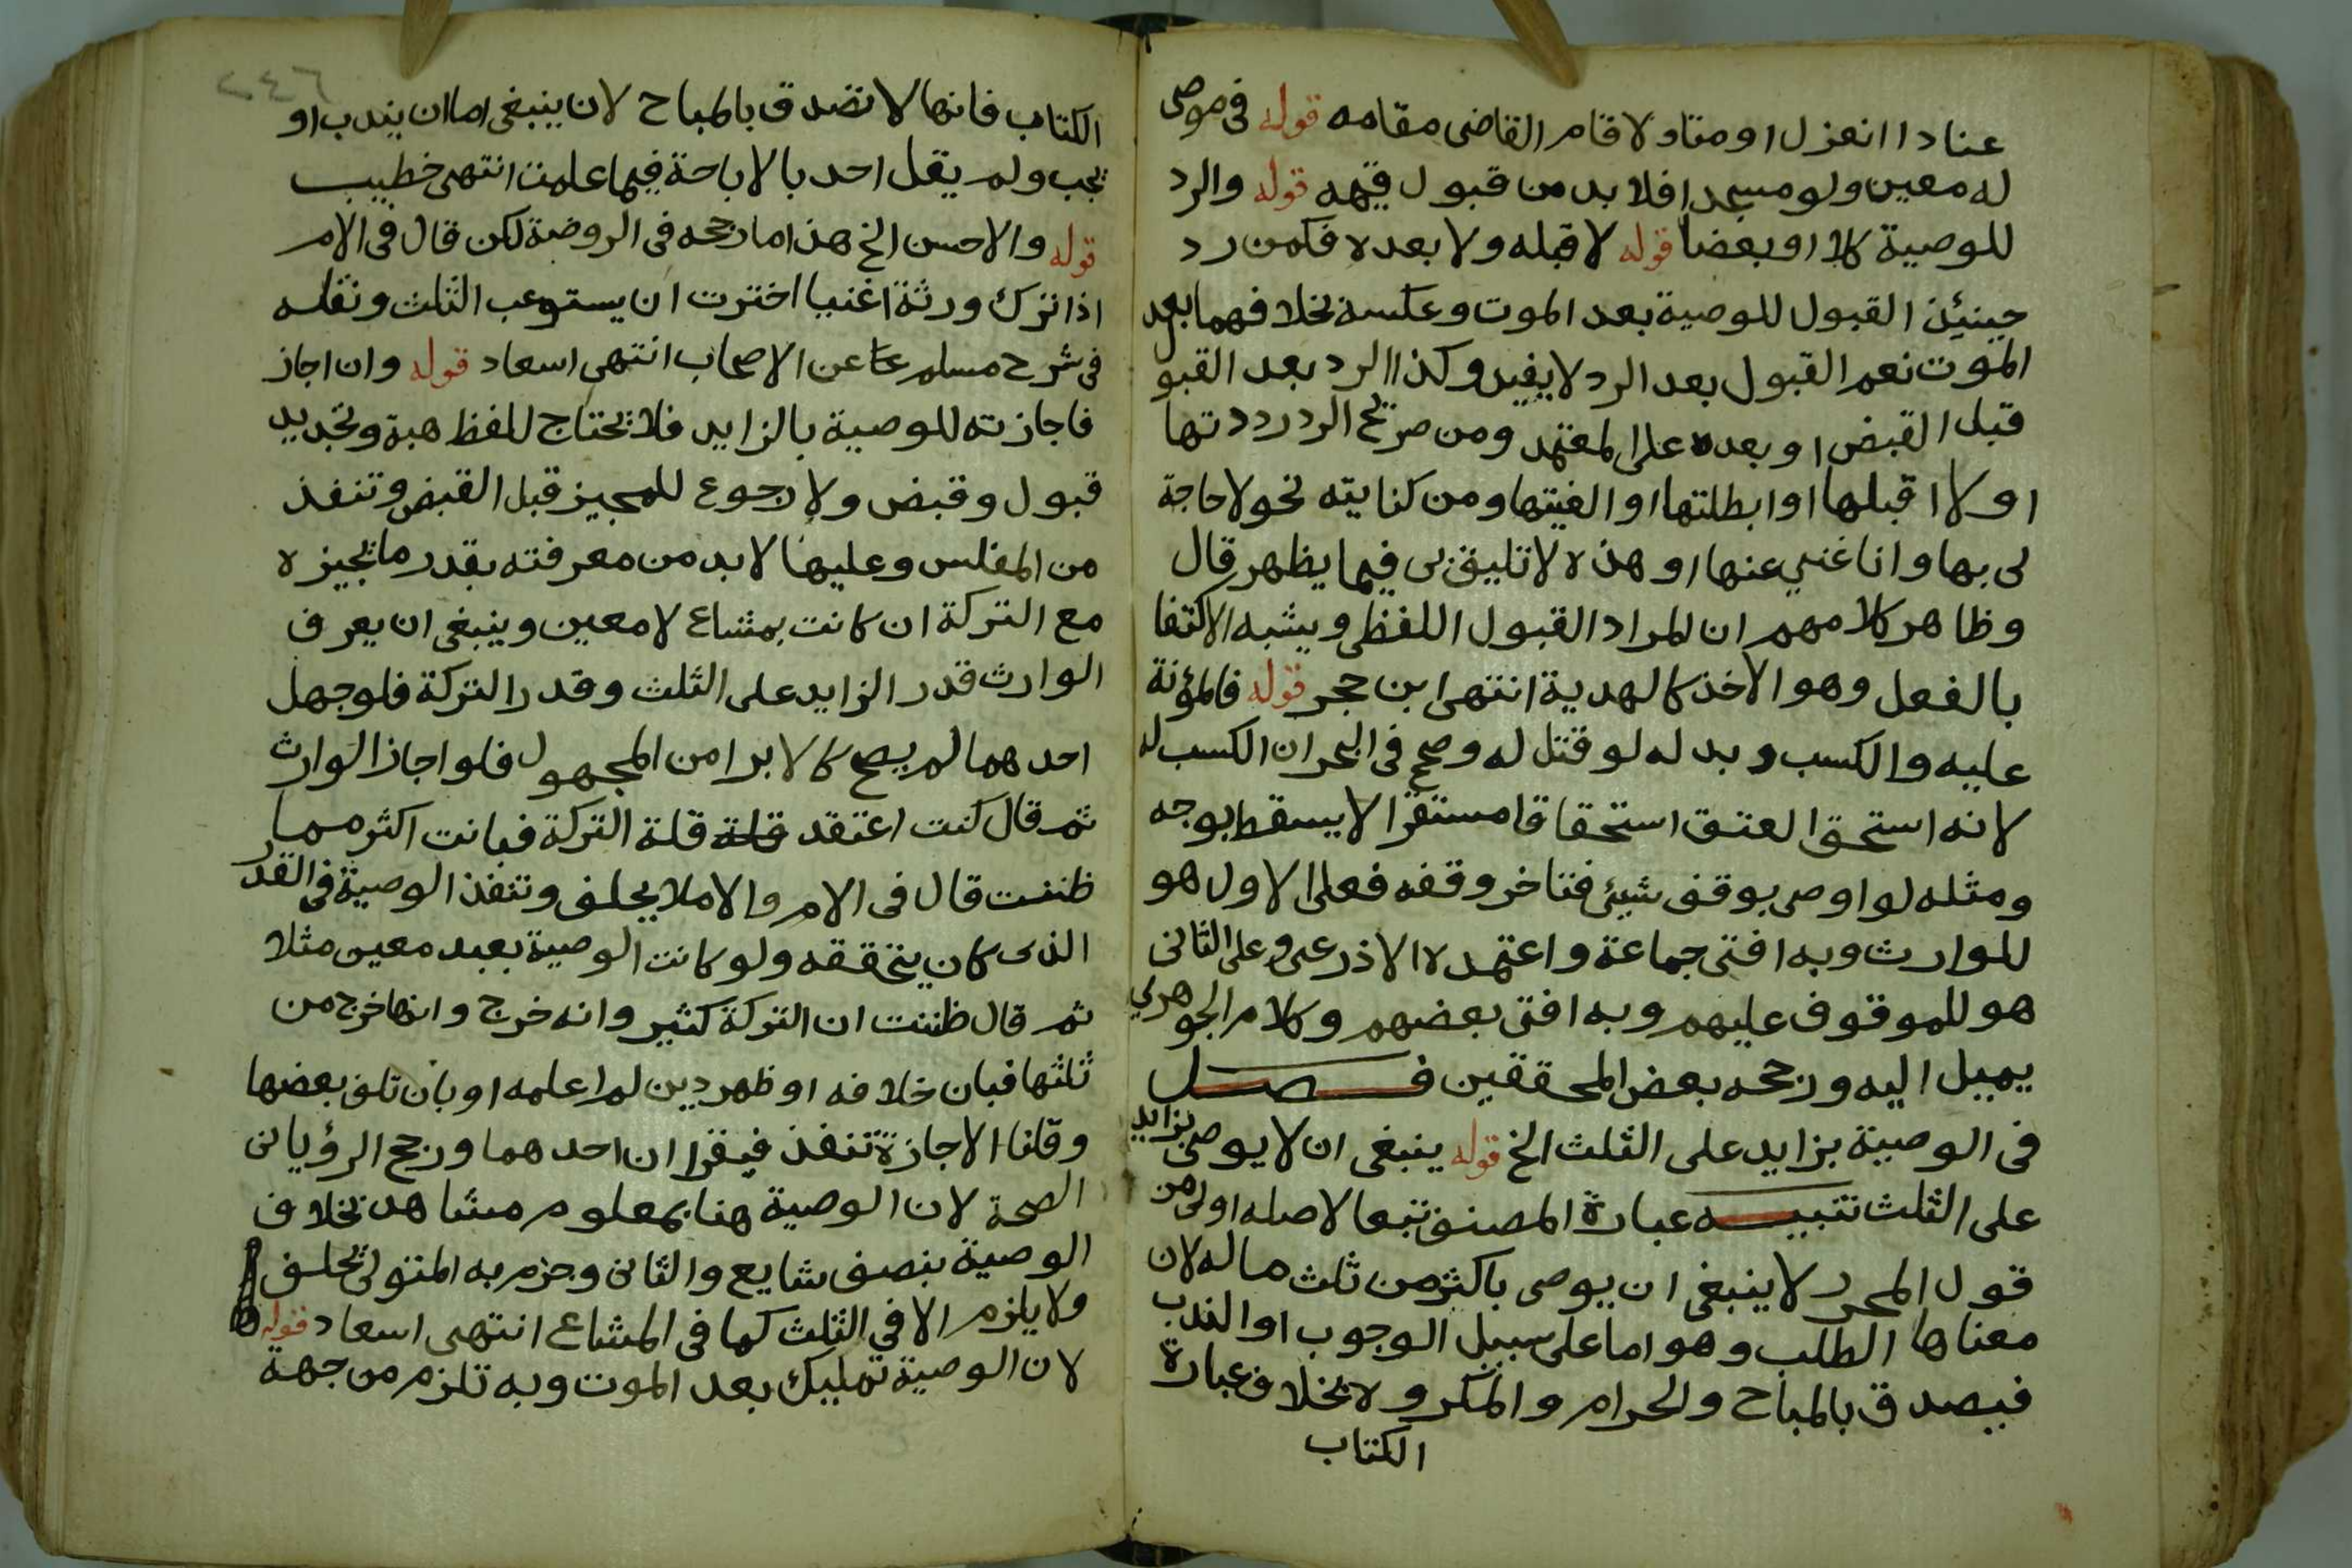 عنادا انعزل او متاولا قام القاضى مقامه قوله فى موصى
له معين ولو مسجدا فلا بد من قبول قيمه قوله والرد
للوصية كلا او بعضا قوله لا قبله ولا بعده فكمن رد
حينئذ القبول للوصية بعد الموت وعكسه بخلافهما بعد
الموت نعم القبول بعد الرد لا يفيد وكذا الرد بعد القبول
قبل القبض او بعده على المعتمد ومن صريح الرد رددتها
او لا اقبلها او ابطلتها او الغيتها ومن كنايته نحو لا حاجة
لى بها وانا غني عنها او هذه لا تليق بى فيما يظهر قال
وظاهر كلامهم ان المراد القبول اللفظى ويشبه الاكتفا
بالفعل وهو الاخذ كالهدية انتهى ابن حجر قوله فالمؤنة
عليه والكسب وبدله لو قتل له وصح فى البحر ان الكسب له
لانه استحق العتق استحقاقا مستقرا لا يسقط بوجه
ومثله لو اوصى بوقف شيئ فتاخر وقفه فعلى الاول هو
للوارث وبه افتى جماعة واعتمده الاذرعى وعلى الثانى
هو للموقوف عليهم وبه افتى بعضهم وكلام الجوهري
يميل اليه ورجحه بعض المحققين فصل
فى الوصية بزايد على الثلث الخ قوله ينبغى ان لا يوصى بزايد
على الثلث تنبيه عبارة المصنف تبعا لاصله اولى من
قول المحرر لا ينبغى ان يوصى باكثر من ثلث ماله لان
معناها الطلب وهو اما على سبيل الوجوب او الندب
فيصدق بالمباح والحرام والمكروه بخلاف عبارة
الكتاب
٢٤٦
الكتاب فانها لا تصدق بالمباح لان ينبغى اما ان يندب او
يجب ولم يقل احد بالاباحة فيما علمت انتهى خطيب
قوله والاحسن الخ هذا ما رجحه فى الروضة لكن قال فى الام
اذا ترك ورثة اغنيا اخترت ان يستوعب الثلث ونقله
فى شرح مسلم عن الاصحاب انتهى اسعاد قوله وان اجاز
فاجازته للوصية بالزايد فلا يحتاج للفظ هبة وتجديد
قبول وقبض ولا رجوع للمجيز قبل القبض وتنفذ
من المفلس وعليهما لا بد من معرفته بقدر ما يجيزه
مع التركة ان كانت بمشاع لا معين وينبغى ان يعرف
الوارث قدر الزايد على الثلث وقدر التركة فلو جهل
احدهما لم يصح كالابرا من المجهول فلو اجاز الوارث
ثم قال كنت اعتقد قلة قلة التركة فبانت اكثر مما
ظننت قال فى الام والاملا يحلف وتنفذ الوصية فى القدر
الذى كان يتحققه ولو كانت الوصية بعبد معين مثلا
ثم قال ظننت ان التركة كثير وانه خرج وانها خرج من
ثلثها فبان خلافه او ظهر دين لم اعلمه او بان تلف بعضها
وقلنا الاجازة تنفذ فيقران احدهما ورجح الرؤيانى
الصحة لان الوصية هنا بمعلوم مشاهد بخلاف
الوصية بنصف شايع والثانى وجزم به المتولى يحلف
ولا يلزم الا فى الثلث كما فى المشاع انتهى اسعاد قوله
لان الوصية تمليك بعد الموت وبه تلزم من جهة